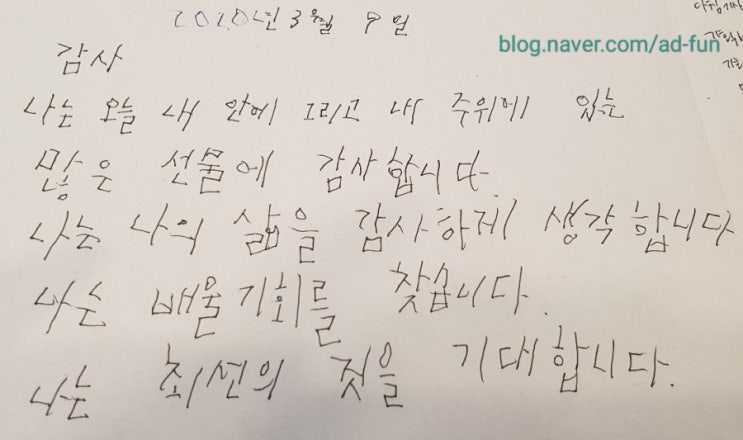 2020년 3월 9일
blog.naver.com/ad-fun
감사
나는 오늘 내 안에 그리고 내 주위에 있는
많은 선물에 감사합니다
나는 나의 삶을 감사하게 생각합니다
나는 배울기회를 찾습니다.
나는 최선의 것을 기대합니다.